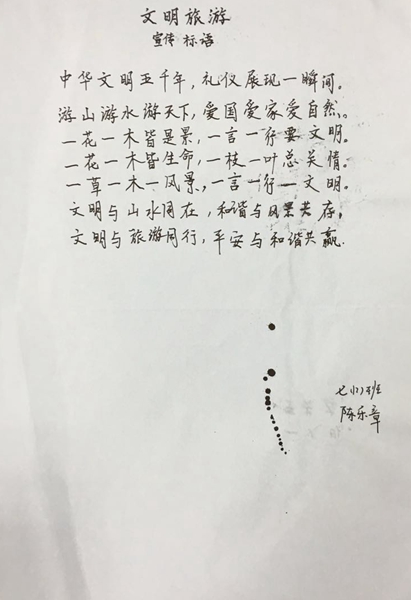 文明旅游
宣传标语
中华文明五千年，礼仪展现一瞬间。
游山游水游天下，爱国爱家爱自然。
一花一木皆是景，一言一行要文明。
一花一木皆生命，一枝一叶总关情。
一草一木一风景，一言一行一文明。
文明与山水同在，和谐与风景共存，
文明与旅游同行，平安与和谐共赢.
班
陈乐章